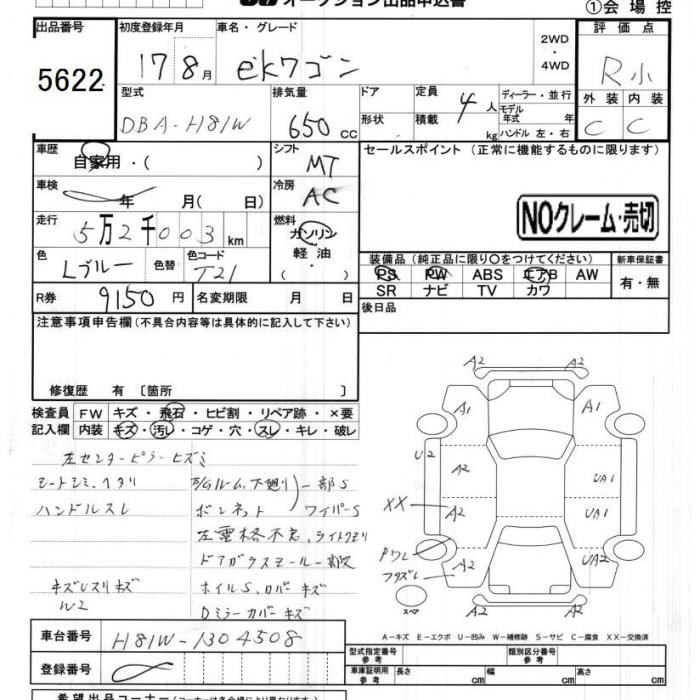 オークション出品申込書
①会場控
出品番号 初度登録年月 車名・グレード 2WD・4WD 評価点
5622 17 8月 ekワゴン R小
型式 排気量 ドア 定員 ディーラー・並行 外装 内装
DBA-H81W 650cc 形状 積載 4人 kg モデル年式 年 ハンドル 左・右 C C
車歴 自家用・( ) シフト MT セールスポイント (正常に機能するものに限ります)
車検 年 月(日) 冷房 AC
NOクレーム・売切
走行 5万2千003km 燃料 ガソリン 軽油・( )
色 Lブルー 色替 色コード T21
装備品 (純正品に限り○をつけてください) 新車保証書
PS PW ABS エアB AW 有・無
SR ナビ TV カワ
R券 9150円 名変期限 月 日 後日品
注意事項申告欄 (不具合内容等は具体的に記入して下さい)
修復歴 有 〔箇所 〕
検査員 FW キズ・飛石・ヒビ割・リペア跡・×要
記入欄 内装 キズ・汚レ・コゲ・穴・スレ・キレ・破レ
左センターピラーヒズミ
シートシミ、ヘタリ E/Gルーム、下廻り 一部S
ハンドルスレ ボンネット ワイパーS
左電格不良、ライトクモリ
ドアガラスモール一部欠
キズUスリキズ ホイルS、カバーキズ
W2 Dミラーカバーキズ
A2
A2
A1 A1
U2 A2 UA1
XX A2 UA1
Pワレ
フタズレ A2 UA2
A2
スペア
A-キズ E-エクボ U-凹み W-補修跡 S-サビ C-腐食 XX-交換済
車台番号 H81W-1304508
型式指定番号 参考 類別区分番号 参考
登録番号 車庫証明用 参考 長さ cm 幅 cm 高さ cm
希望出品コーナー